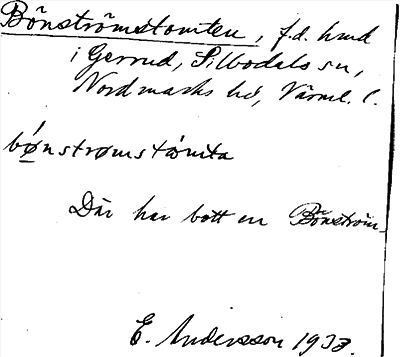 Bönströmstomten, f.d. hmd
i Gerrud, Silbodals sn,
Nordmarks hd, Värml. l.
bǿnstrømstòmta
Där har bott en Bönström.
E. Andersson 193